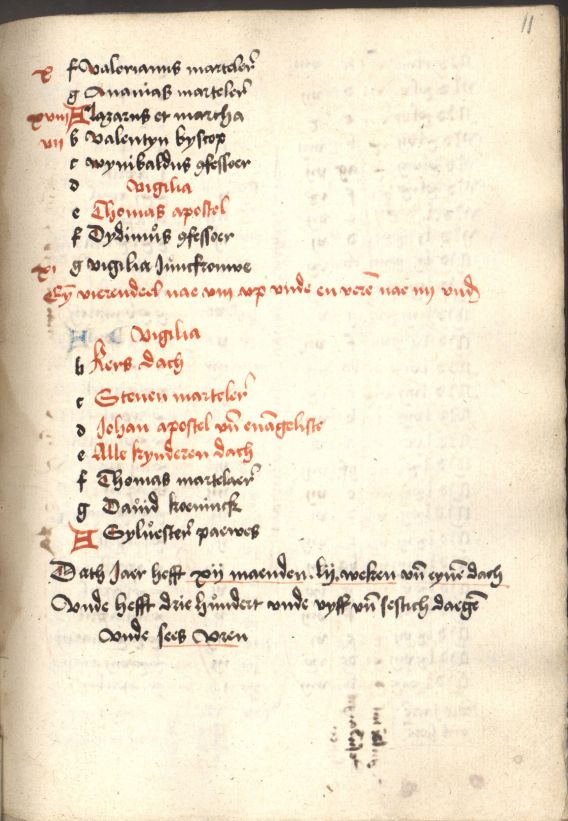 11
x f Valerianus marteler
g Ananias marteler
xviii A Lazarus et martha
vii b Valentyn byscop
c wynibaldus cfessoer
d Vigilia
e Thomas apostel
f Dydimus cfessoer
xi g vigilia Juncfrouwe
Ey vierendeel nae viii up unde en vere nae iiii und
A Vigilia
b Kers dach
c Steuen marteler
d Johan apostel un euageliste
e Alle kynderen dach
f Thomas martelaer
g Dauid koeninck
A Syluester paewes
Dath Jaer hefft xii maenden. lii. weken un eyne dach
Vnde hefft drie hundert vnde vyff un sestich daege
Vnde sees vren